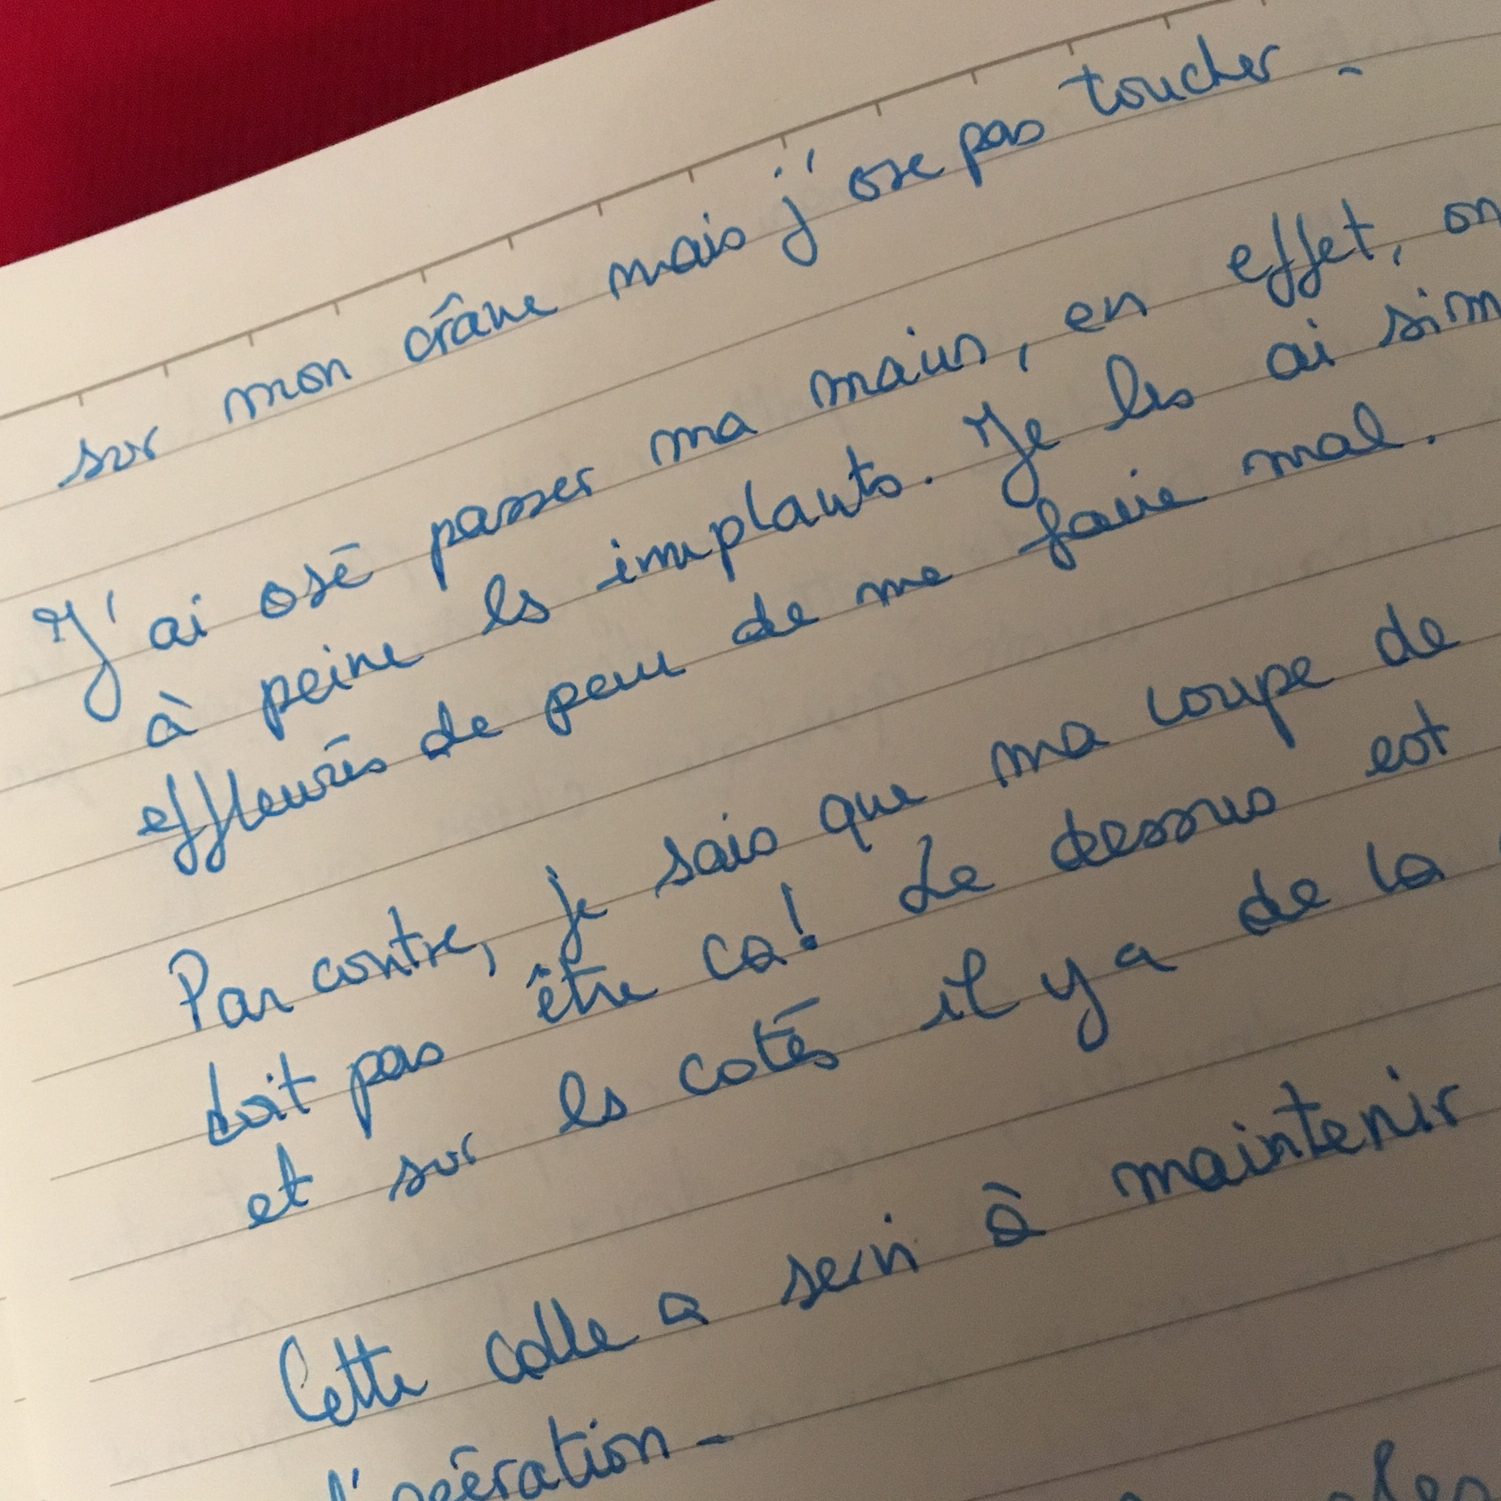 sur mon crâne mais j'ose pas toucher.
J'ai osé passer ma main, en effet, on
à peine les implants. Je les ai sim
effleurés de peur de me faire mal.
Par contre, je sais que ma coupe de
doit pas être ca! Le dessus est
et sur les cotés il y a de la
Cette colle a servi à maintenir
l'opération.